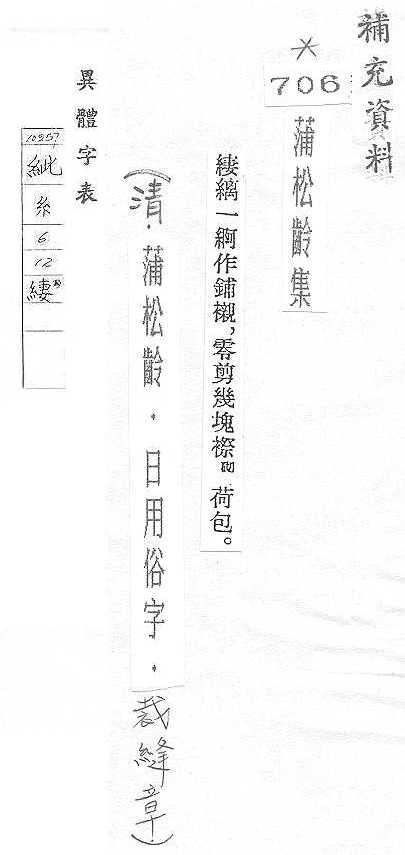 補充資料
*
706
蒲松齡集
縷縭一綗作鋪襯，零剪幾塊襟 荷包。
（清．蒲松齡．日用俗字．裁縫章）
異體字表
10957
紪
糸
6
12
縷